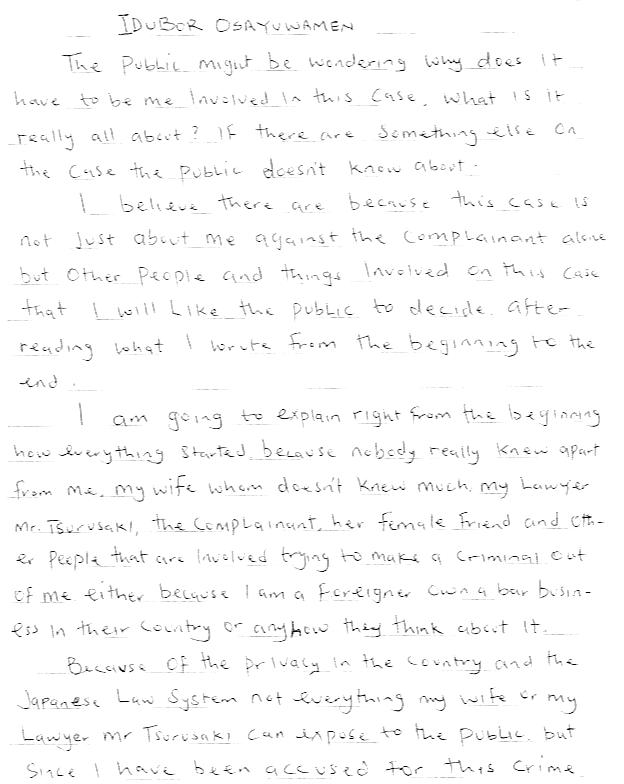 IDUBOR OSAYUWAMEN
The Public might be wondering why does it
have to be me Involved In this case, what is it
really all about? If there are something else on
the case the public doesn't know about.
I believe there are because this case is
not just about me against the complainant alone
but other people and things Involved on this case
that I will Like the public to decide after
reading what I wrote from the beginning to the
end.
I am going to explain right from the beginning
how everything started because nobody really knew apart
from me, my wife whom doesn't knew much, my Lawyer
Mr. Tsurusaki, the complainant, her female friend and oth-
er people that are Involved trying to make a criminal out
of me either because I am a foreigner own a bar busin-
ess In their country or anyhow they think about It.
Because of the privacy In the country and the
Japanese Law System not everything my wife or my
Lawyer Mr Tsurusaki can expose to the public, but
Since I have been accused for this crime